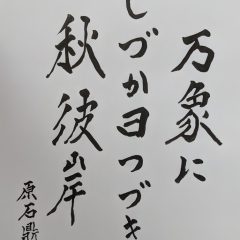 万象に
しづかヨつづき
秋彼岸
原石鼎